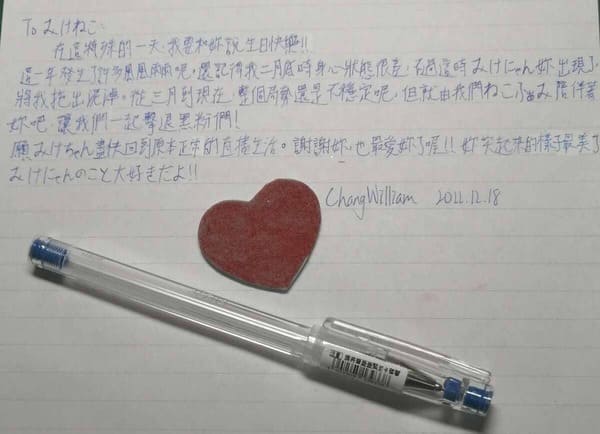 To みけねこ:
在這特殊的一天,我要和妳說生日快樂!!
這一年發生了許多風風雨雨呢,還記得我二月底時身心狀態很差,不過這時みけにゃん妳出現了,
將我拖出泥潭。從三月到現在,整個局勢還是不穩定呢,但就由我們ねこふぁみ陪伴著
妳吧,讓我們一起擊退黑粉們!
願みけちゃん盡快回到原本正常的直播生活。謝謝妳,也最愛妳了喔!!妳笑起來的樣子最美了
みけにゃんのこと大好きだよ!!
ChangWilliam 2022.12.18